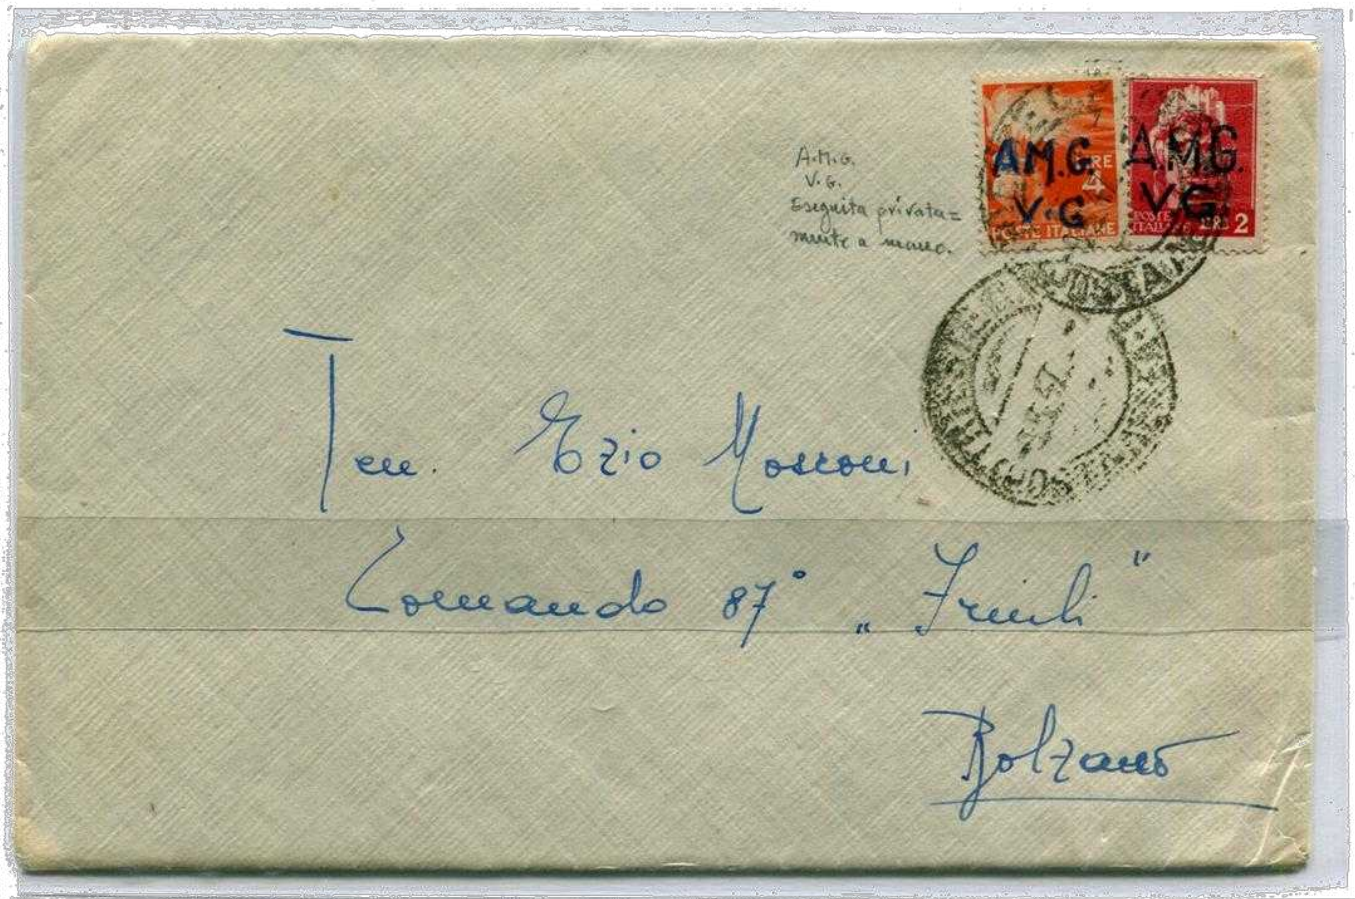 A.M.G.
V.G.
Eseguita privata=
mente a mano.
A.M.G.
V.G
LIRE
4
POSTE ITALIANE
A.M.G.
V G.
POSTE
ITALIANE LIRE 2
TRIESTE
Ten. Ezio Mosconi
Comando 87° „ Friuli "
Bolzano